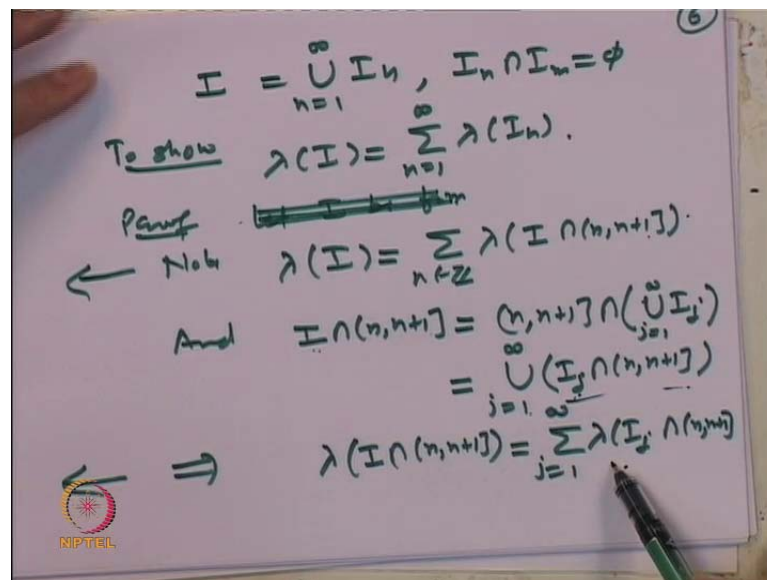 6
I = ∞⋃n=1 In , In ∩ Im = φ
To show λ(I) = ∞∑n=1 λ(In).
Proof
Note λ(I) = ∑n∈ℤ λ(I ∩ (n, n+1]).
And I ∩ (n, n+1] = (n, n+1] ∩ (∞⋃j=1 Ij)
= ∞⋃j=1 (Ij ∩ (n, n+1])
⇐ ⇒ λ(I ∩ (n, n+1]) = ∞∑j=1 λ(Ij ∩ (n, n+1]
NPTEL